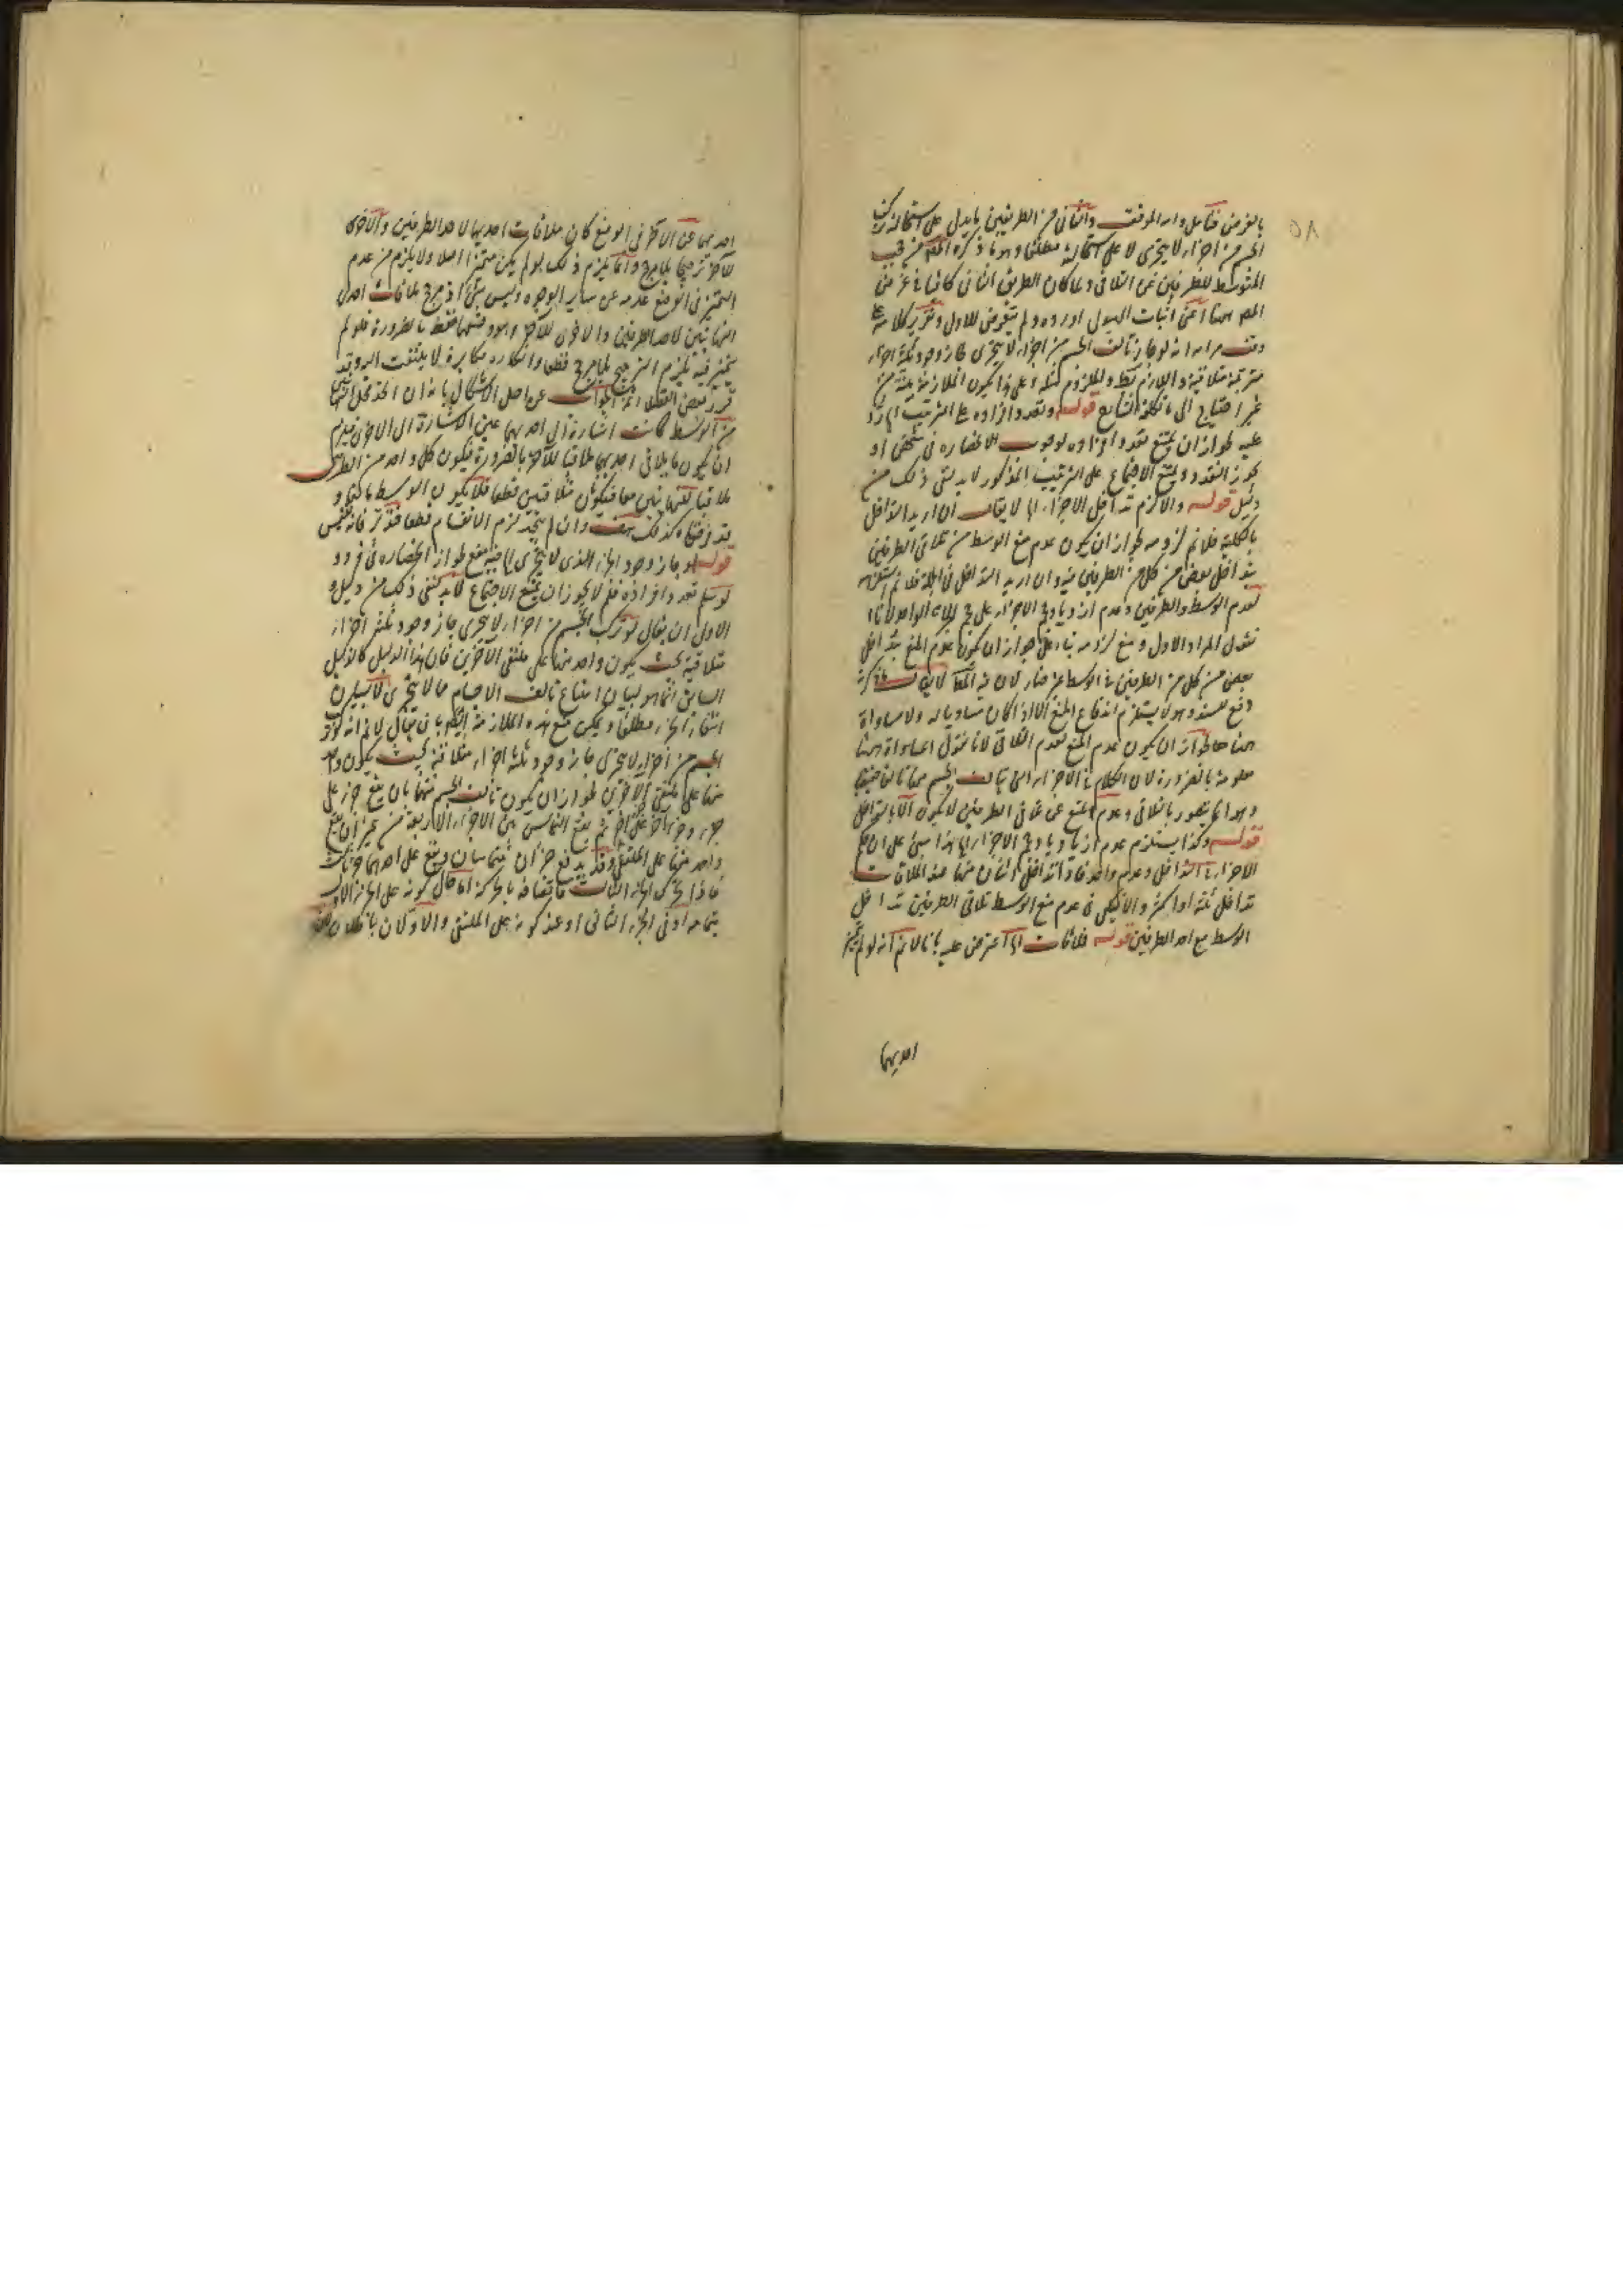 ٥٨
بالغرض فتأمل والله الموفق والثاني من الطريقين ما يدل على استحالة تركب
الجسم من اجزاء لا يتجزى لا على استحالته مطلقا وهو ما ذكره المص من حجب
المتوسط للطرفين عن التلاقي ولما كان الطريق الثاني كافيا في غرض
المص ههنا اعنى اثبات الهيولى اورده ولم يتعرض للاول وتقرير كلامه على
وفق مرامه انه لو جاز تألف الجسم من اجزاء لا يتجزى جاز وجود ثلثة اجزاء
مترتبة متلاقية واللازم بط والملزوم مثله وعلى هذا يكون الملازمة بينة من
غير احتياج الى ما تكلفه الشارح قوله وتعدد افراده على الترتيب اه يرد
عليه لجواز ان يمتنع تعدد افراده لوجوب الانحصار في شخص او
يجوز التعدد ويمتنع الاجتماع على الترتيب المذكور لا بد لنفى ذلك من
دليل قوله والا لزم تداخل الاجزاء اه لا يقال ان اريد التداخل
بالكلية فلا نم لزومه لجواز ان يكون عدم منع الوسط من تلاقي الطرفين
بتداخل بعض من كل من الطرفين فيه وان اريد التداخل في الجملة فلا نم استلزامه
لعدم الوسط والطرفين وعدم ازدياد حجم الاجزاء على حجم الواحد لانا
نقول المراد الاول ومنع لزومه بناء على جواز ان يكون عدم المنع بتداخل
بعض من كل من الطرفين في الوسط غير ضار لان فيه المط لا يقال ما ذكرته
دفع للسند وهو لا يستلزم اندفاع المنع الا اذا كان مساويا له ولا مساواة
ههنا لجواز ان يكون عدم المنع لعدم التلاقي لانا نقول المساواة ههنا
معلومة بالضرورة لان الكلام في الاجزاء التي تألف الجسم منها تألفا حقيقيا
وهو انما يتصور بالتلاقي وعدم المنع عن تلاقي الطرفين لا يكون الا بالتداخل
قوله وكذا يستلزم عدم ازدياد حجم الاجزاء اه هذا مبنى على ان حكم
الاجزاء في التداخل وعدمه واحد فاذا تداخل اثنان منها عند الملاقات
تداخل ثلثة او اكثر والا فيكفى في عدم منع الوسط تلاقي الطرفين تداخل
الوسط مع احد الطرفين قوله فلاقات اه اعترض عليه بانا لا نم انه لو لم يتميز
احديهما
احديهما عن الاخرى في الوضع كان ملاقات احديهما لاحد الطرفين والاخرى
للآخر ترجيحا بلا مرجح وانما يلزم ذلك لو لم يكن متميزا اصلا ولا يلزم من عدم
التميز في الوضع عدمه عن ساير الوجوه وليس بشئ اذ مرجح ملاقات احدى
النهايتين لاحد الطرفين والاخرى للآخر وهو وضعهما فقط بالضرورة فلو لم
يتميز فيه يلزم الترجيح بلا مرجح قطعا وانكاره مكابرة لا يلتفت اليه وقد
قرر بعض الفضلاء هذا الجواب عن اصل الاشكال بانه ان اتحد محل النهايتين
من الوسط كانت اشارة الى احديهما عين الاشارة الى الاخرى فيلزم
ان يكون ما يلاقي احديهما ملاقيا للآخر بالضرورة فيكون كل واحد من الطرفين
ملاقيا للنهايتين معا فيكونان متلاقيين قطعا فلا يكون الوسط مانعا و
قد فرضناه كذلك هف وان لم يتحد لزم الانقسام قطعا فتدبر فانه نفيس
قوله لو جاز وجود الجزء الذى لا يتجزى اه فيه منع لجواز انحصاره في فرد و
لو سلم تعدد افراده فلم لا يجوز ان يمتنع الاجتماع لا بد لنفى ذلك من دليل و
الاولى ان يقال لو تركب الجسم من اجزاء لا يتجزى جاز وجود ثلثة اجزاء
متلاقية بحيث يكون واحد منها على ملتقى الآخرين فان هذا الدليل كالدليل
السابق انما هو لبيان امتناع تألف الاجسام مما لا يتجزى لا لبيان
انتفاء الجزء مطلقا ويمكن منع هذه الملازمة ايضا بان يقال لا نم انه لو تركب
الجسم من اجزاء لا يتجزى جاز وجود ثلثة اجزاء متلاقية بحيث يكون واحد
منها على ملتقى الآخرين لجواز ان يكون تألف الجسم منها بان يقع جزء على
جزء وجزء آخر على آخر ثم يقع التماس بين الاجزاء الاربعة من غير ان يقع
واحد منها على الملتقى وقد يدفع جزآن متماسان ويقع على احدهما ثالث
فاذا تحرك الجزء الثالث فاتصافه بالحركة اما حال كونه على الجزء الاول
بتمامه او في الجزء الثاني او عند كونه على الملتقى والاولان باطلان